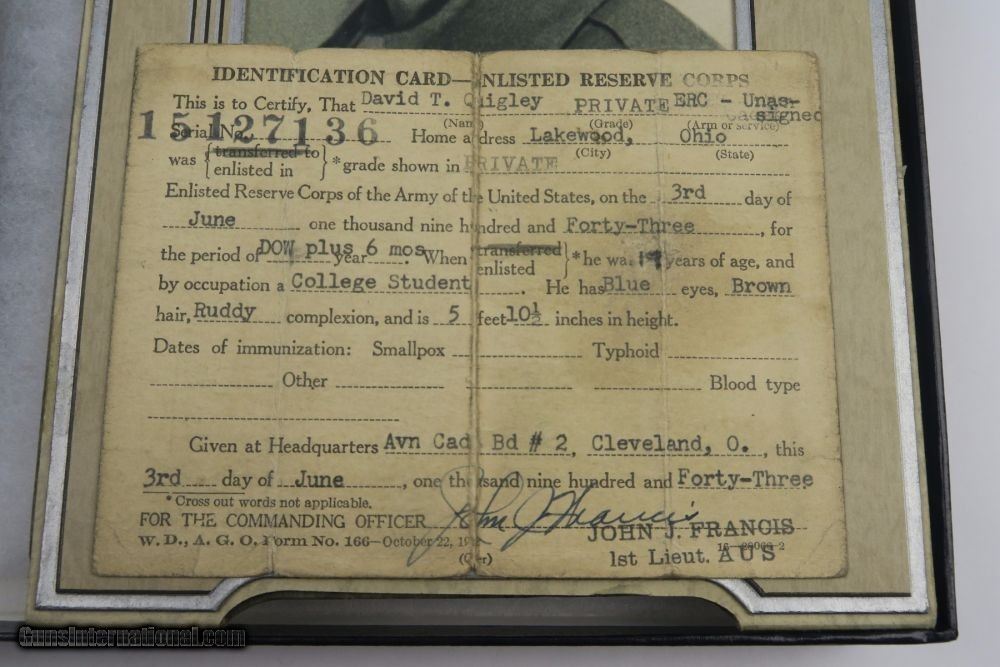 IDENTIFICATION CARD—ENLISTED RESERVE CORPS
This is to Certify, That David T. Quigley PRIVATE ERC - Unas-
signed
(Name) (Grade) (Arm or service)
Serial No. 15127136 Home address Lakewood, Ohio
(City) (State)
was {transferred to
enlisted in} *grade shown in PRIVATE
Enlisted Reserve Corps of the Army of the United States, on the 3rd day of
June one thousand nine hundred and Forty-Three, for
the period of DOW plus 6 mos year . When {transferred
enlisted} *he was 19 years of age, and
by occupation a College Student . He has Blue eyes, Brown
hair, Ruddy complexion, and is 5 feet 10½ inches in height.
Dates of immunization: Smallpox Typhoid
Other Blood type
Given at Headquarters Avn Cad Bd # 2, Cleveland, O., this
3rd day of June, one thousand nine hundred and Forty-Three
* Cross out words not applicable.
FOR THE COMMANDING OFFICER John J Francis
JOHN J. FRANCIS
W. D., A. G. O. Form No. 166—October 22, (Over) 1st Lieut. AUS
GunsInternational.com